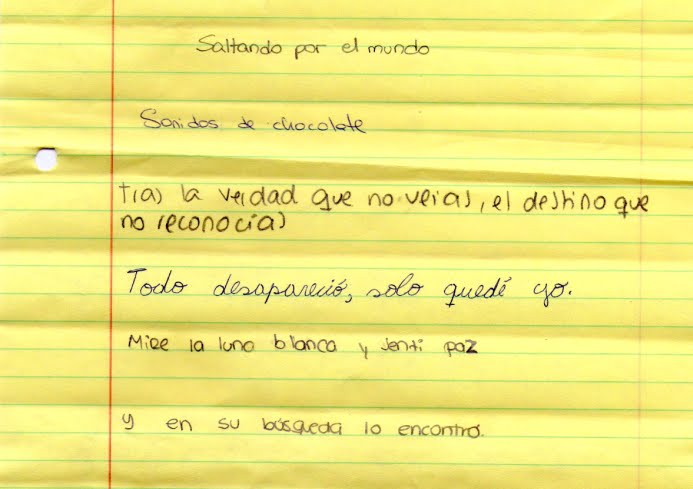 Saltando por el mundo
Sonidos de chocolate
tras la verdad que no veias, el destino que
no reconocías
Todo desapareció, solo quedé yo.
Mire la luna blanca y senti paz
y en su búsqueda lo encontró.